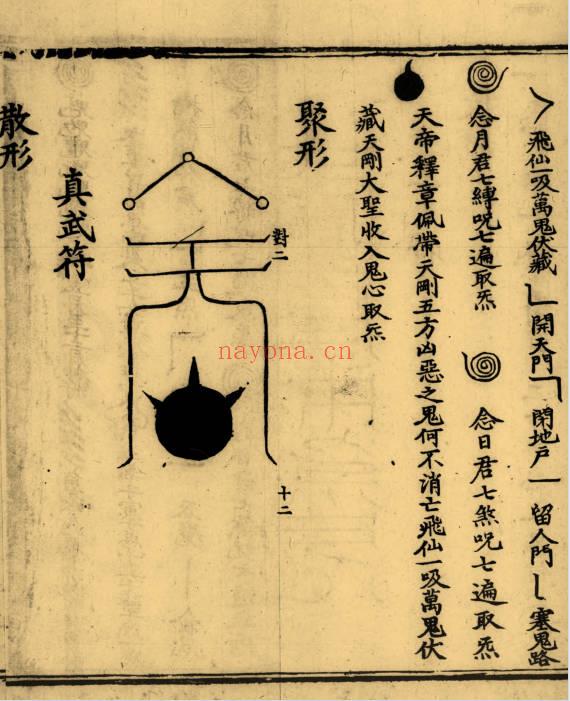 飛仙一吸萬鬼伏藏 開天門 閉地戶 留人門 塞鬼路
念月君七縛呪七遍取炁 念日君七煞呪七遍取炁
天帝釋章佩帶天剛五方凶惡之鬼何不消亡飛仙一吸萬鬼伏
藏天剛大聖收入鬼心取炁
聚形
對二
十二
真武符
散形
nayona.cn